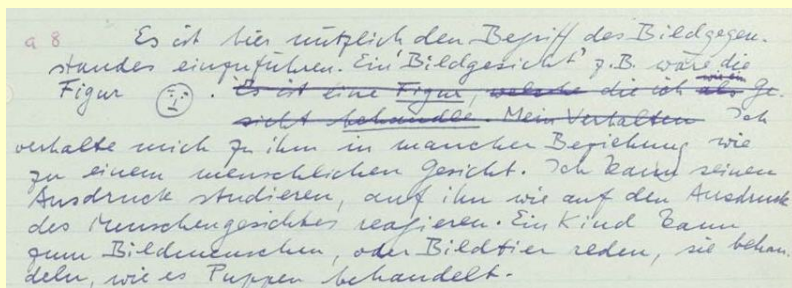 a 8 Es ist hier nützlich den Begriff des Bildgegen-
standes einzuführen. Ein 'Bildgesicht' z.B. wäre die
Figur . Es ist eine Figur, welche die ich als wie ein Ge-
sicht behandle. Mein Verhalten Ich
verhalte mich zu ihm in mancher Beziehung wie
zu einem menschlichen Gesicht. Ich kann seinen
Ausdruck studieren, auf ihn wie auf den Ausdruck
des Menschengesichtes reagieren. Ein Kind kann
zum Bildmenschen, oder Bildtier reden, sie behan-
deln, wie es Puppen behandelt.